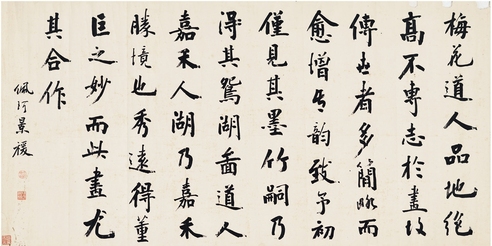 梅花道人品地絶
高不專志於畫故
傳世者多簡略而
愈增其韵致予初
僅見其墨竹嗣乃
得其鴛湖圖道人
嘉禾人湖乃嘉禾
勝境也秀遠得董
巨之妙而此畫尤
其合作
佩珂景福